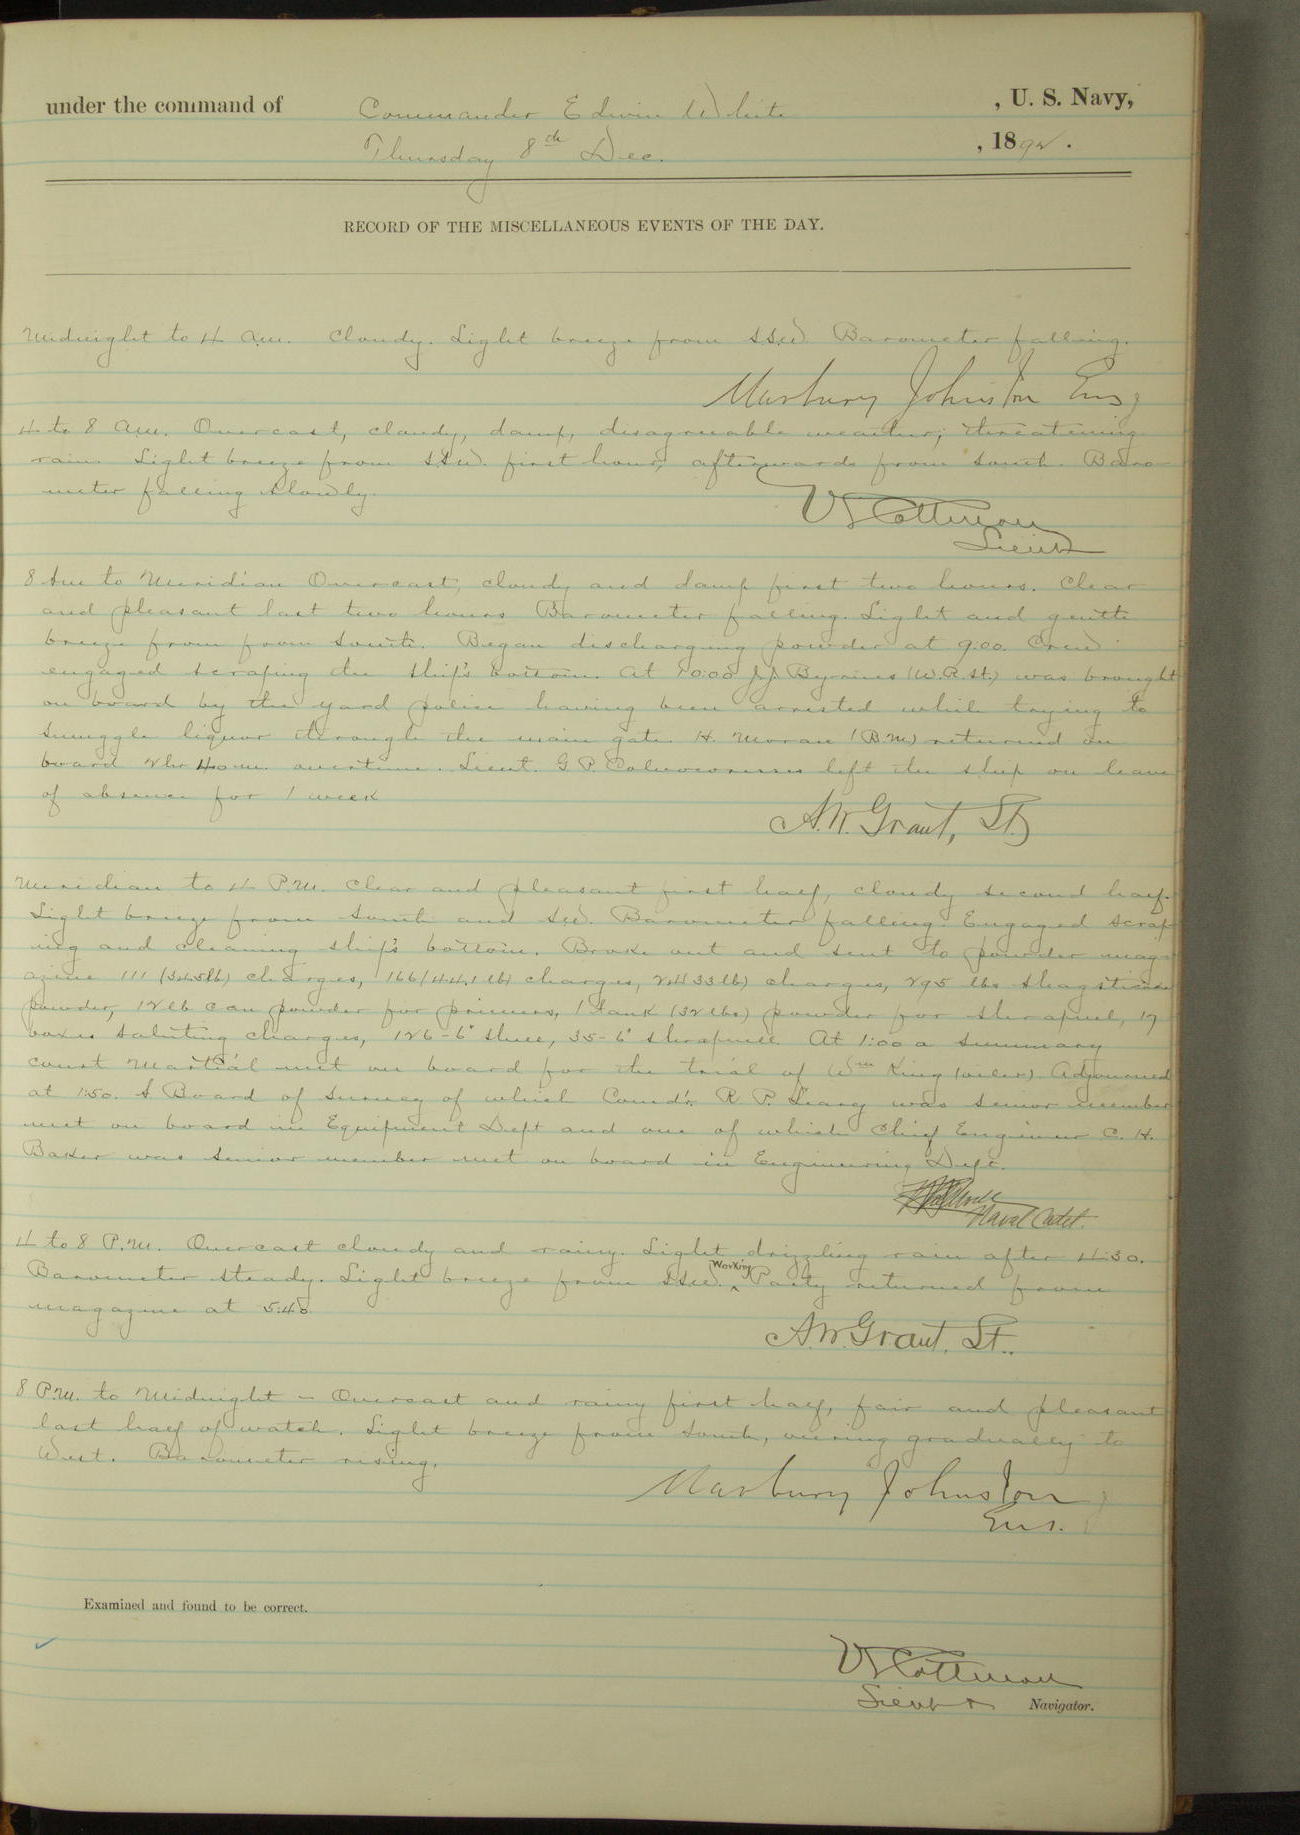 under the command of Commander Edwin White , U. S. Navy,
Thursday 8th Dec. , 1892.
RECORD OF THE MISCELLANEOUS EVENTS OF THE DAY.
Midnight to 4 a.m. Cloudy. Light breeze from SSW. Barometer falling.
Marbury Johnston Ens
4 to 8 a.m. Overcast, cloudy, damp, disagreeable weather; threatening
rain. Light breeze from SSW. first hour, afterwards from South. Baro-
meter falling slowly.
VS Cottman
Lieut
8 Am to Meridian Overcast, cloudy and damp first two hours. Clear
and pleasant last two hours Barometer falling. Light and gentle
breeze from from South. Began discharging powder at 9:00. Crew
engaged scraping the ship's bottom. At 10:00 J.J. Byrines (W.R.St.) was brought
on board by the yard police having been arrested while trying to
smuggle liquor through the main gate. H. Moran (B.M) returned on
board 2hr 40m. overtime. Lieut. G.P. Colvocoresses left the ship on leave
of absence for 1 week
A.W. Grant, Lt.
Meridian to 4 P.M. Clear and pleasant first half, cloudy second half.
Light breeze from South and SW. Barometer falling. Engaged scrap-
ing and cleaning ship's bottom. Broke out and sent to powder mag-
azine 111 (34.5lb) charges, 166 (44.1 lb) charges, 24 (33 lb) charges, 295 lbs
powder, 12 lb can powder for primers, 1 tank (32 lbs) powder for shrapnel, 17
boxes saluting charges, 126-6" shell, 35-6" shrapnell At 1:00 a summary
court Martial met on board for the trial of Wm King (oiler). Adjourned
at 1:50. A Board of Survey of which Comd'r. R. P. Leary was senior member
met on board in Equipment Dept and one of which Chief Engineer C. H.
Baker was senior member met on board in Engineering Dept.
Naval Cadet.
4 to 8 P.M. Overcast cloudy and rainy. Light drizzling rain after 4:30.
Barometer steady. Light breeze from SSW. Working Party returned from
magazine at 5:40.
A.W. Grant, Lt.
8 P.M. to Midnight - Overcast and rainy first half, fair and pleasant
last half of watch. Light breeze from South, veering gradually to
West. Barometer rising.
Marbury Johnston
Ens.
Examined and found to be correct.
VS Cottman
Lieut Navigator.